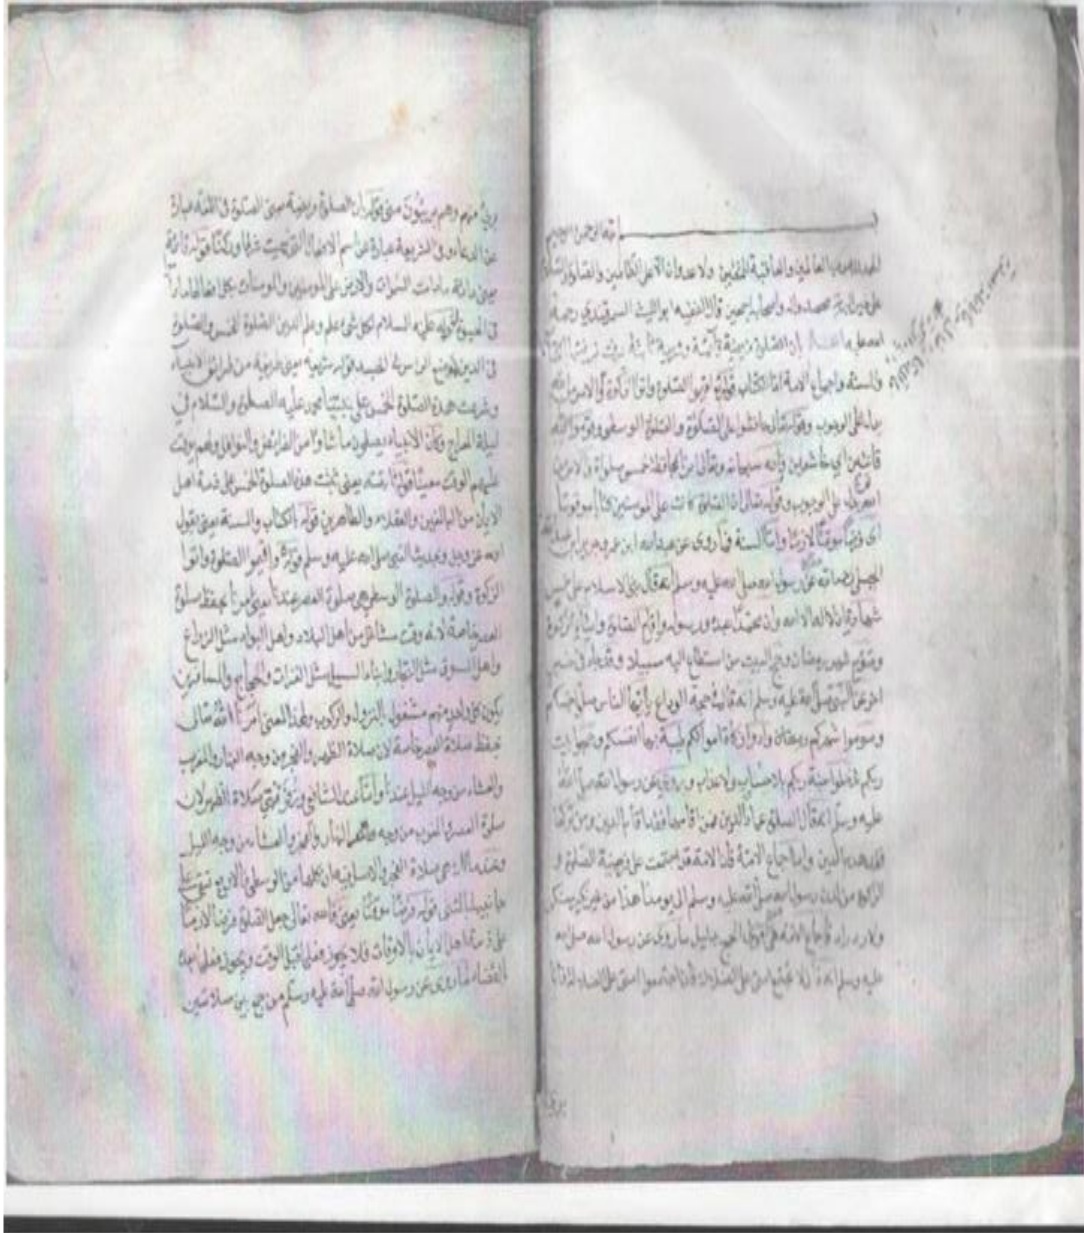 بسم الله الرحمن الرحيم
الحمد لله رب العالمين والعاقبة للمتقين ولا عدوان الا على الظالمين والصلوة
على محمد واله واصحابه اجمعين قال الفقيه ابو الليث السمرقندي رحمة
الله عليه اعلم ان الصلوة فريضة قائمة وشريعة ثابتة عرفت فرضيتها بالكتاب
والسنة واجماع الامة اما الكتاب قوله تعالى واقيموا الصلوة واتوا الزكوة والامر من الله
يدل على الوجوب وقوله تعالى حافظوا على الصلوات والصلوة الوسطى وقوموا لله
قانتين اي خاشعين وانه سبحانه وتعالى امرنا بمحافظة خمس صلوات والامر من
الله يدل على الوجوب وقوله تعالى ان الصلوة كانت على المؤمنين كتابا موقوتا
اى فرضا موقتا لازما واما السنة فما روى عن عبد الله ابن عمر وجرير ابن عبد الله
البجلي رضى الله عن رسول الله صلى الله عليه وسلم انه قال بنى الاسلام على خمس
شهادة ان لا اله الا الله وان محمدا عبده ورسوله واقام الصلوة وايتاء الزكوة
وصوم شهر رمضان وحج البيت من استطاع اليه سبيلا وقد جاء في خبر
اخر عن النبي صلى الله عليه وسلم انه قال في حجة الوداع يا ايها الناس صلوا خمسكم
وصوموا شهركم رمضان وادوا زكاة اموالكم طيبة بها انفسكم وحجوا بيت
ربكم تدخلوا جنة ربكم بلا حساب ولا عذاب وروى عن رسول الله صلى الله
عليه وسلم انه قال الصلوة عماد الدين فمن اقامها فقد اقام الدين ومن تركها
فقد هدم الدين واما اجماع الامة فان الامة قد اجتمعت على فريضة الصلوة و
الزكوة من لدن رسول الله صلى الله عليه وسلم الى يومنا هذا من غير نكير منكر
ولا رد راد فاجماع الامة من اقوى الحجج بدليل ما روى عن رسول الله صلى الله
عليه وسلم انه قال لا تجتمع امتى على الضلالة فاذا اجتمعوا امتى على الضلالة فانا
برئ
برئ منهم وهم بريئون منى قوله ان الصلوة فريضة معنى الصلوة فى اللغة عبارة
عن الدعاء وفى الشريعة عبارة عن اسم الافعال التى عرفا وركنا قوله قائمة
يعنى دائمة مادامت السموات والارض على المؤمنين والمومنات
لقوله عليه السلام لكل شئ علم وعلم الدين الصلوة الخمس والصلوة
فى الدين كموضع الراس فى الجسد قوله شريعة يعنى طريقة من طرائق الانبياء
وشرعت هذه الصلوة الخمس على نبينا محمد عليه الصلوة والسلام في
ليلة المعراج وكان الانبياء يصلون ما شاؤا من الفرائض والنوافل ولم يوقت
عليهم الوقت معينا قوله ثابتة يعنى ثبتت هذه الصلوة الخمس على ذمة اهل
الايمان من البالغين والعقلاء والطاهرين قوله بالكتاب والسنة يعنى بقول
الله عز وجل وبحديث النبى صلى الله عليه وسلم قوله واقيموا الصلوة واتوا
الزكوة وقوله والصلوة الوسطى هى صلوة العصر عندنا يعنى امرنا بحفظ صلوة
العصر خاصة لانه وقت مشاغل من اهل البلاد واهل البواد مثل الزراع
واهل السوق مثل التجار وابناء السبيل مثل الغزات والحجاج والمسافرين
يكون كل واحد منهم مشغول النزول والركوب ولهذا المعنى امرنا الله تعالى
بحفظ صلاة العصر خاصة لان صلاة الظهر والفجر من وجه النهار والمغرب
والعشاء من وجه الليل عندنا واما عند الشافعي هى صلاة الظهر لان
صلوة العصر والمغرب من وجه النهار والفجر والعشاء من وجه الليل
وعند مالك هى صلاة الفجر
قوله فرضا موقتا يعنى فان الله تعالى جعل الصلوة فرضا لازما
على ذمة اهل الايمان بالاوقات فلا يجوز فعلها قبل الوقت ويجوز فعلها بعد
القضاء لما روى عن رسول الله صلى الله عليه وسلم من جمع بين صلاتين